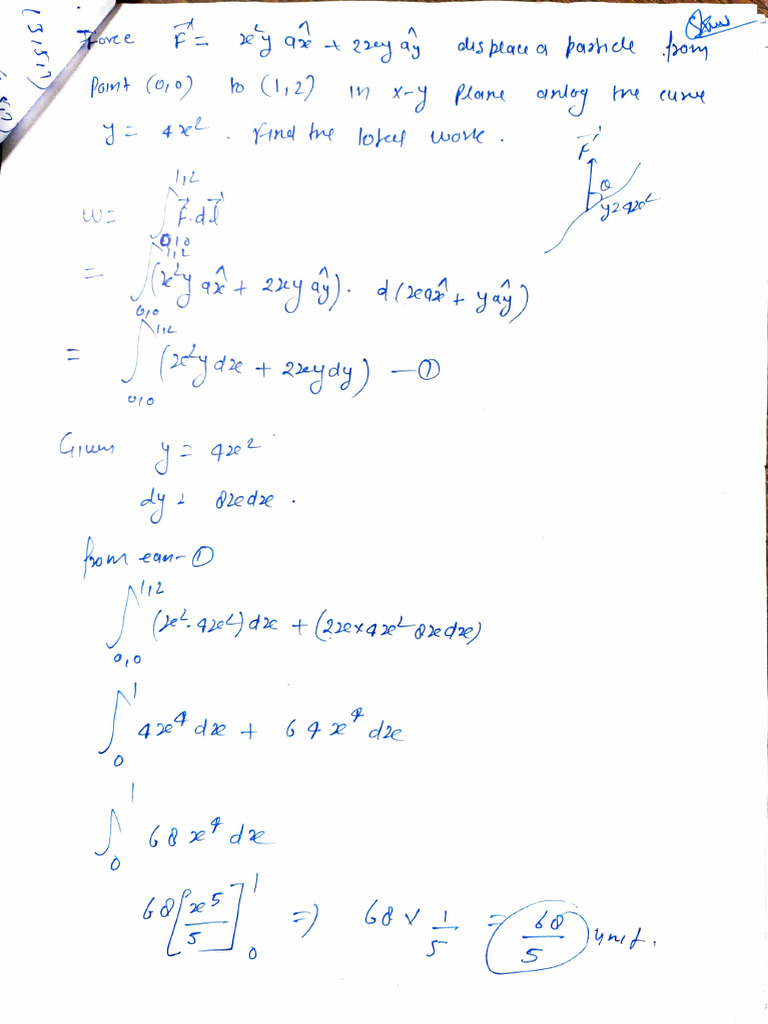 Force F⃗ = x²y ax̂ + 2xy aŷ displace a particle from
point (0,0) to (1,2) in x-y plane anlog the curve
y = 4x². Find the total work.
F⃗
θ
y=4x²
W= ∫0,0^1,2 F⃗.dl⃗
= ∫0,0^1,2 (x²y ax̂ + 2xy aŷ). d(xax̂ + yaŷ)
= ∫0,0^1,2 (x²ydx + 2xydy) —①
Given y = 4x²
dy = 8xdx.
from eqn-①
∫0,0^1,2 (x².4x²)dx + (2x×4x² 8xdx)
∫0^1 4x⁴ dx + 64x⁴ dx
∫0^1 68x⁴ dx
68[x⁵/5]0^1 => 68 × 1/5 = 68/5 unit.